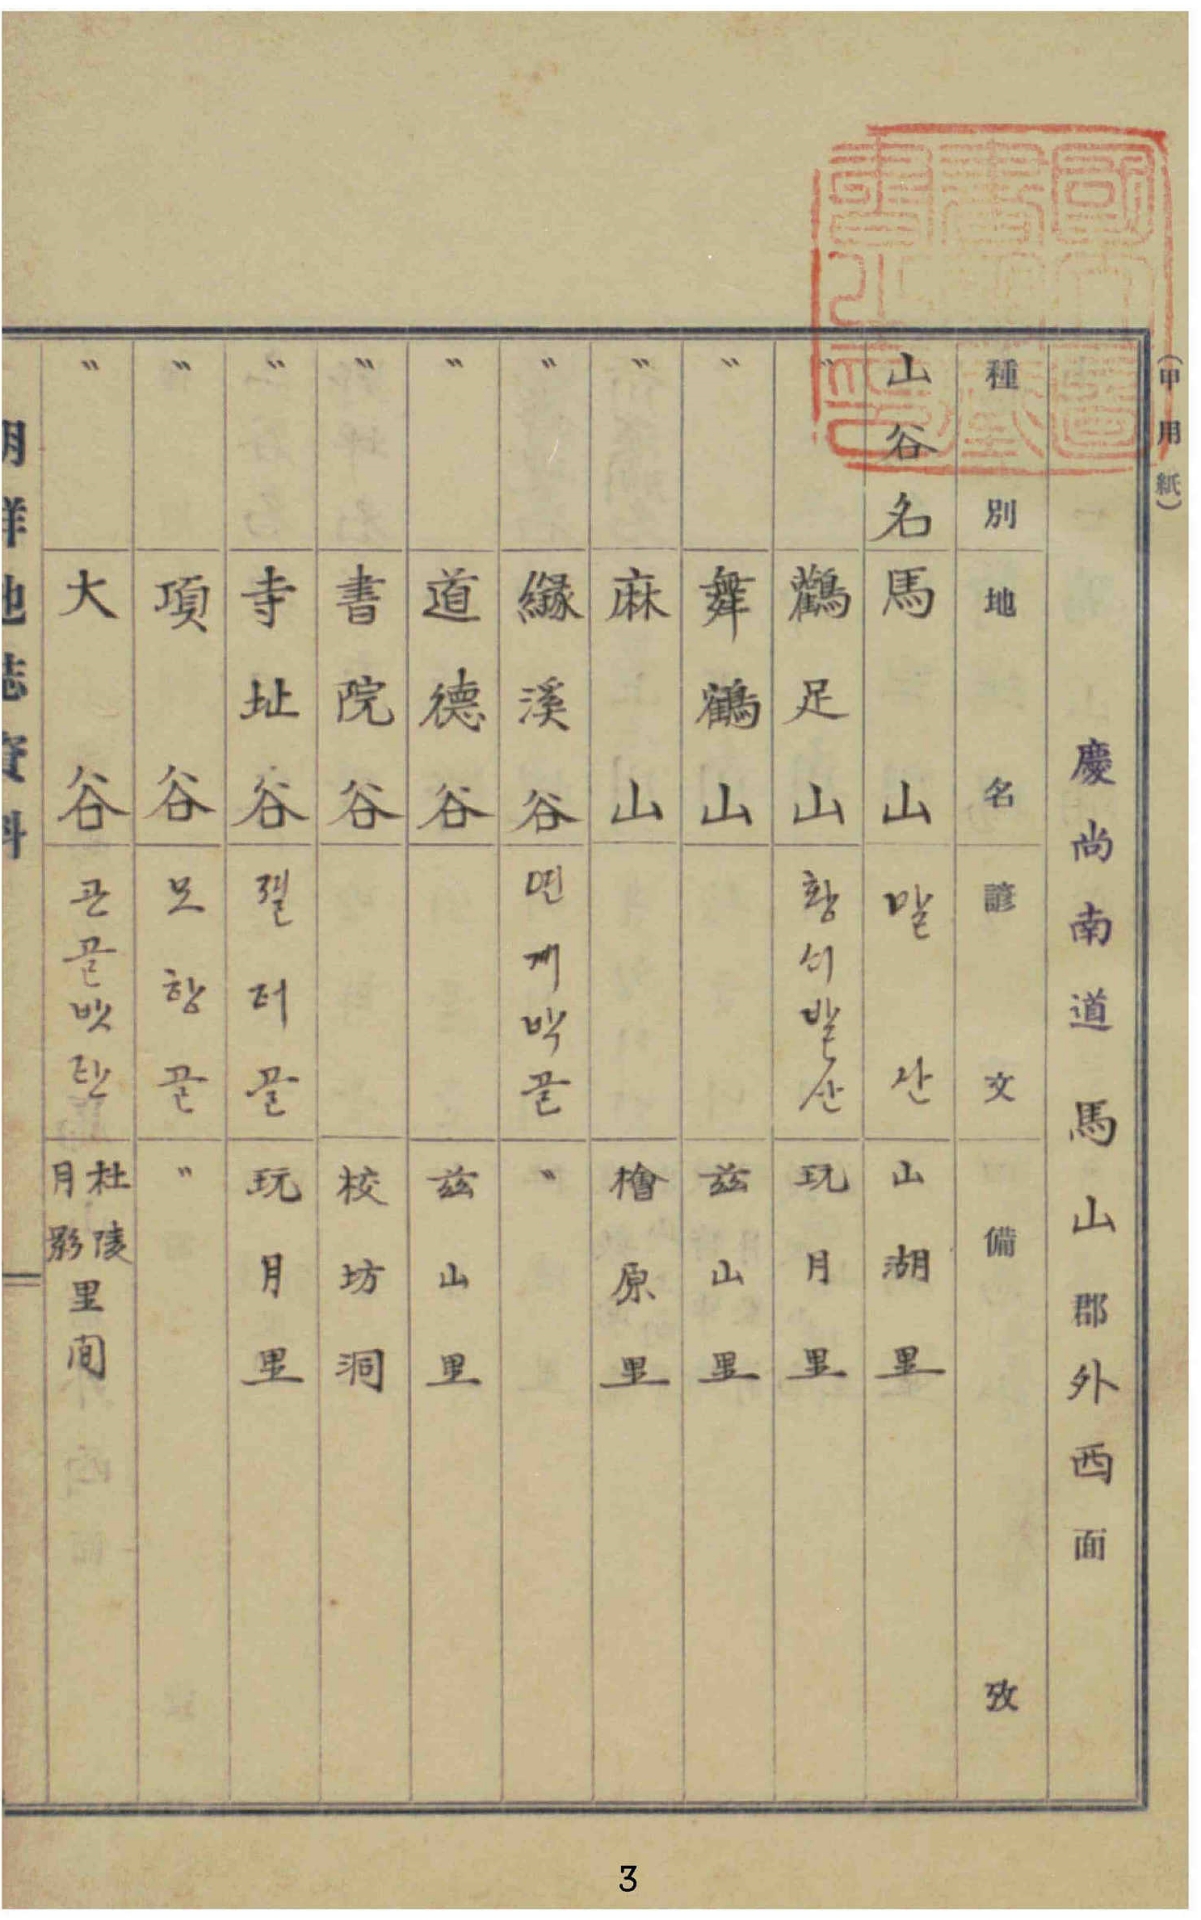 (甲用紙)
慶尚南道馬山郡外西面
種別 地名 諺文 備攷
山谷名 馬山 말산 山湖里
〃 鸛足山 황시발산 玩月里
〃 舞鶴山 玆山里
〃 麻山 檜原里
〃 緣溪谷 면계박골 〃
〃 道德谷 玆山里
〃 書院谷 校坊洞
〃 寺址谷 졀터골 玩月里
〃 項谷 모항골 〃
〃 大谷 큰골밧탄 杜陵月影里間
朝鮮地誌資料
3